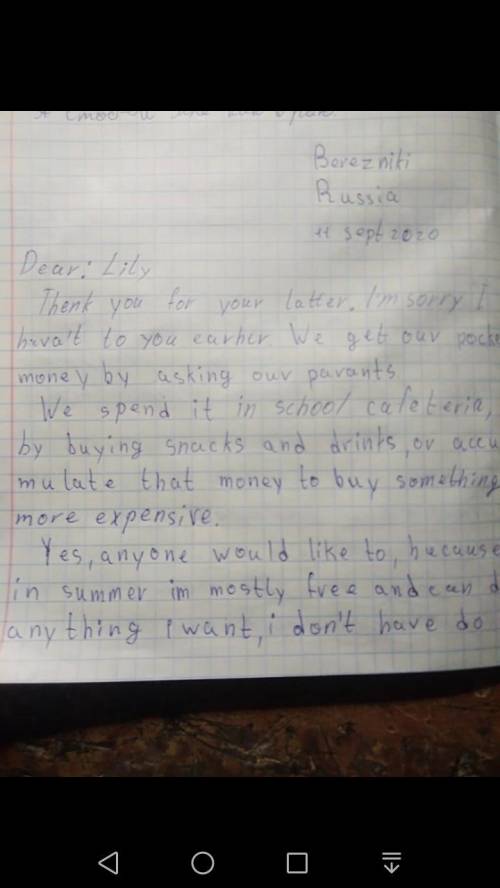 Berezniki
Russia
11 sept 2020
Dear: Lily
Thenk you for your latter. I'm sorry I
hava't to you earher. We get our pocke
money by asking our parants
We spend it in school cafeteria,
by buying snacks and drints, or accu
mulate that money to buy something
more expensive.
Yes, anyone would like to, because
in summer im mostly free and can d
anything i want, i don't have do